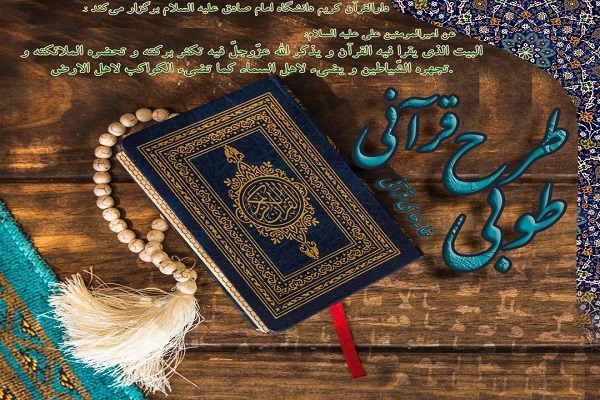 دارالقرآن کریم دانشگاه امام صادق علیه السلام برگزار می‌کند :
عن امیرالمرمنین علی علیه السلام:
البیت الذی یقرا فیه القرآن و یذکر الله عزّوجلّ فیه تکثر برکته و تحضره الملائکته و
تجهره الشّیاطین و یضیء لاهل السماء کما تضیء الکواکب لاهل الارض.
طرح قرآنی
طوبی
القرآن الكريم